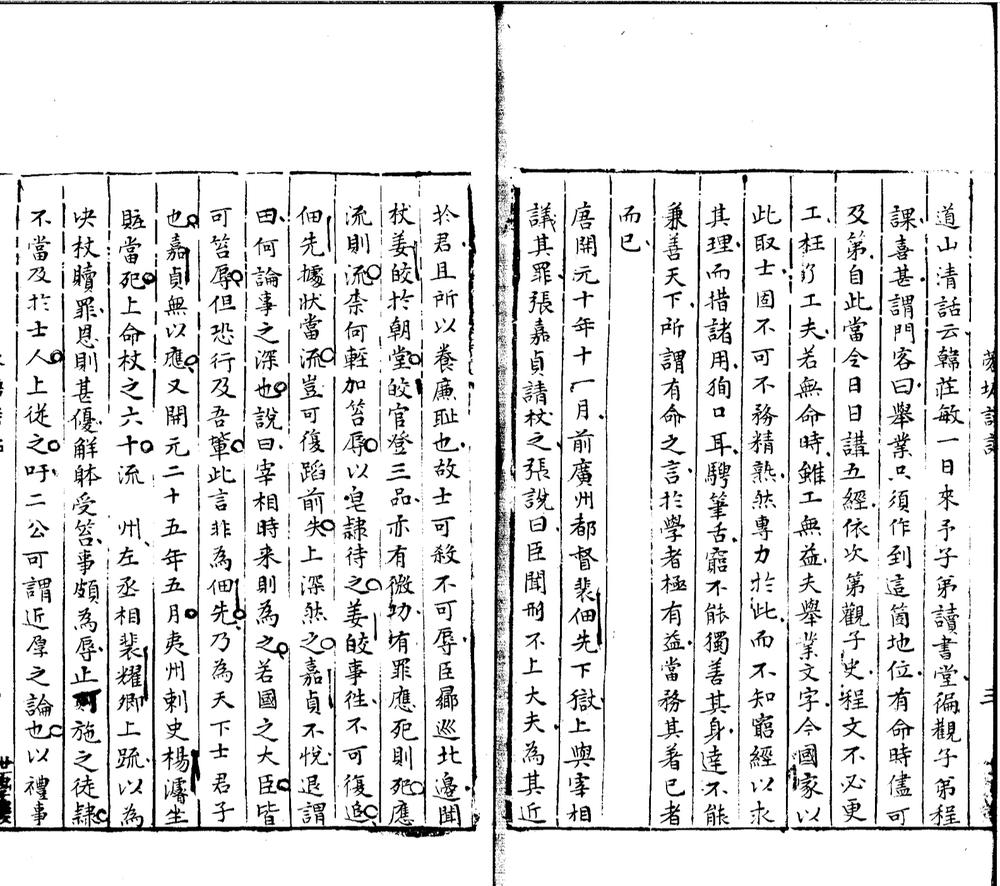 道山清話云韓莊敏一日來予子弟讀書堂徧觀子弟程
課喜甚謂門客曰舉業只須作到這箇地位有命時儘可
及第自此當令日日講五經依次第觀子史程文不必更
工枉了工夫若無命時雖工無益夫舉業文字今國家以
此取士固不可不務精熟然專力於此而不知窮經以求
其理而措諸用狥口耳騁筆舌窮不能獨善其身達不能
兼善天下所謂有命之言於學者極有益當務其著已者
而已
唐開元十年十一月前廣州都督裴伷先下獄上與宰相
議其罪張嘉貞請杖之張說曰臣聞刑不上大夫為其近
於君且所以養廉恥也故士可殺不可辱臣曏巡北邊聞
杖姜皎於朝堂皎官登三品亦有微功有罪應死則死應
流則流柰何輕加笞辱以皂隸待之姜皎事徃不可復追
伷先據狀當流豈可復蹈前失上深然之嘉貞不悅退謂
曰何論事之深也說曰宰相時来則為之若國之大臣皆
可笞辱但恐行及吾輩此言非為伷先乃為天下士君子
也嘉貞無以應又開元二十五年五月夷州刺史楊濬坐
賍當死上命杖之六十流 州左丞相裴耀卿上䟽以為
决杖贖罪恩則甚優解體受笞事頗為辱止可施之徒隸
不當及於士人上從之吁二公可謂近厚之論也以禮事
三